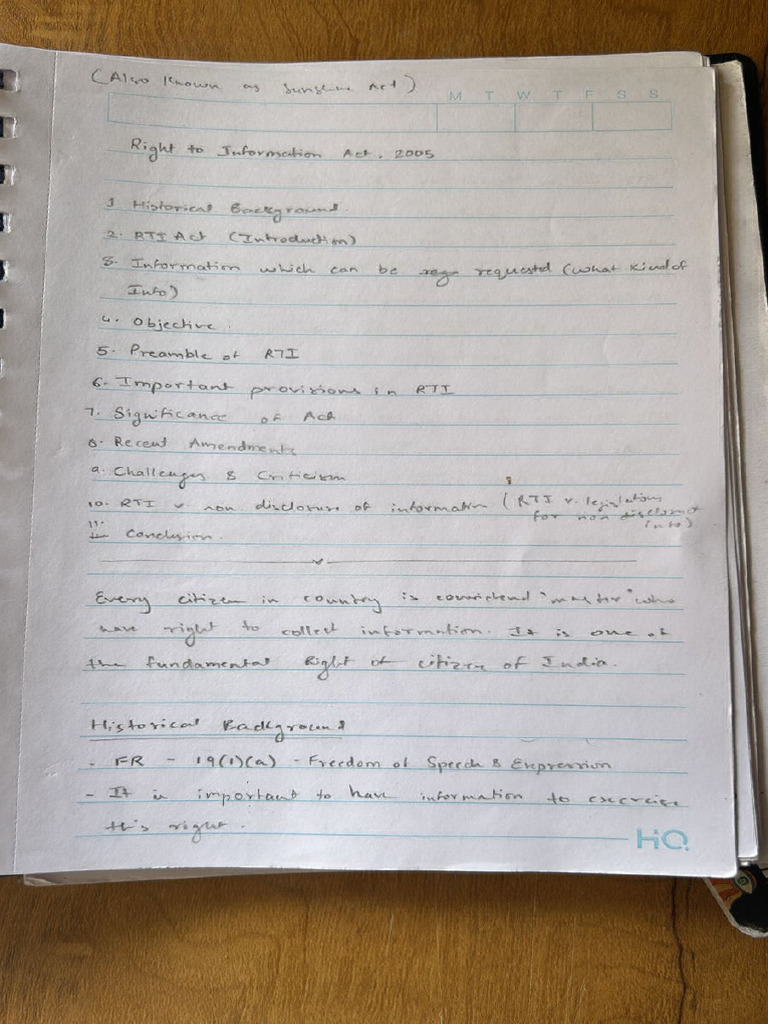 (Also known as Sunshine Act)
M T W T F S S
Right to Information Act, 2005
1 Historical Background.
2. RTI Act (Introduction)
3. Information which can be requested (what kind of
Info)
4. Objective.
5. Preamble of RTI
6. Important provisions in RTI
7. Significance of Act
8. Recent Amendments
9. Challenges & Criticism
10. RTI v. non disclosure of information (RTI v. legislations
for non disclosure
info)
11. Conclusion.
Every citizen in country is "master" who
have right to collect information. It is one of
the fundamental Right of citizen of India.
Historical Background
- FR - 19(1)(a) - Freedom of Speech & Expression
- It is important to have information to exercise
this right.
HQ